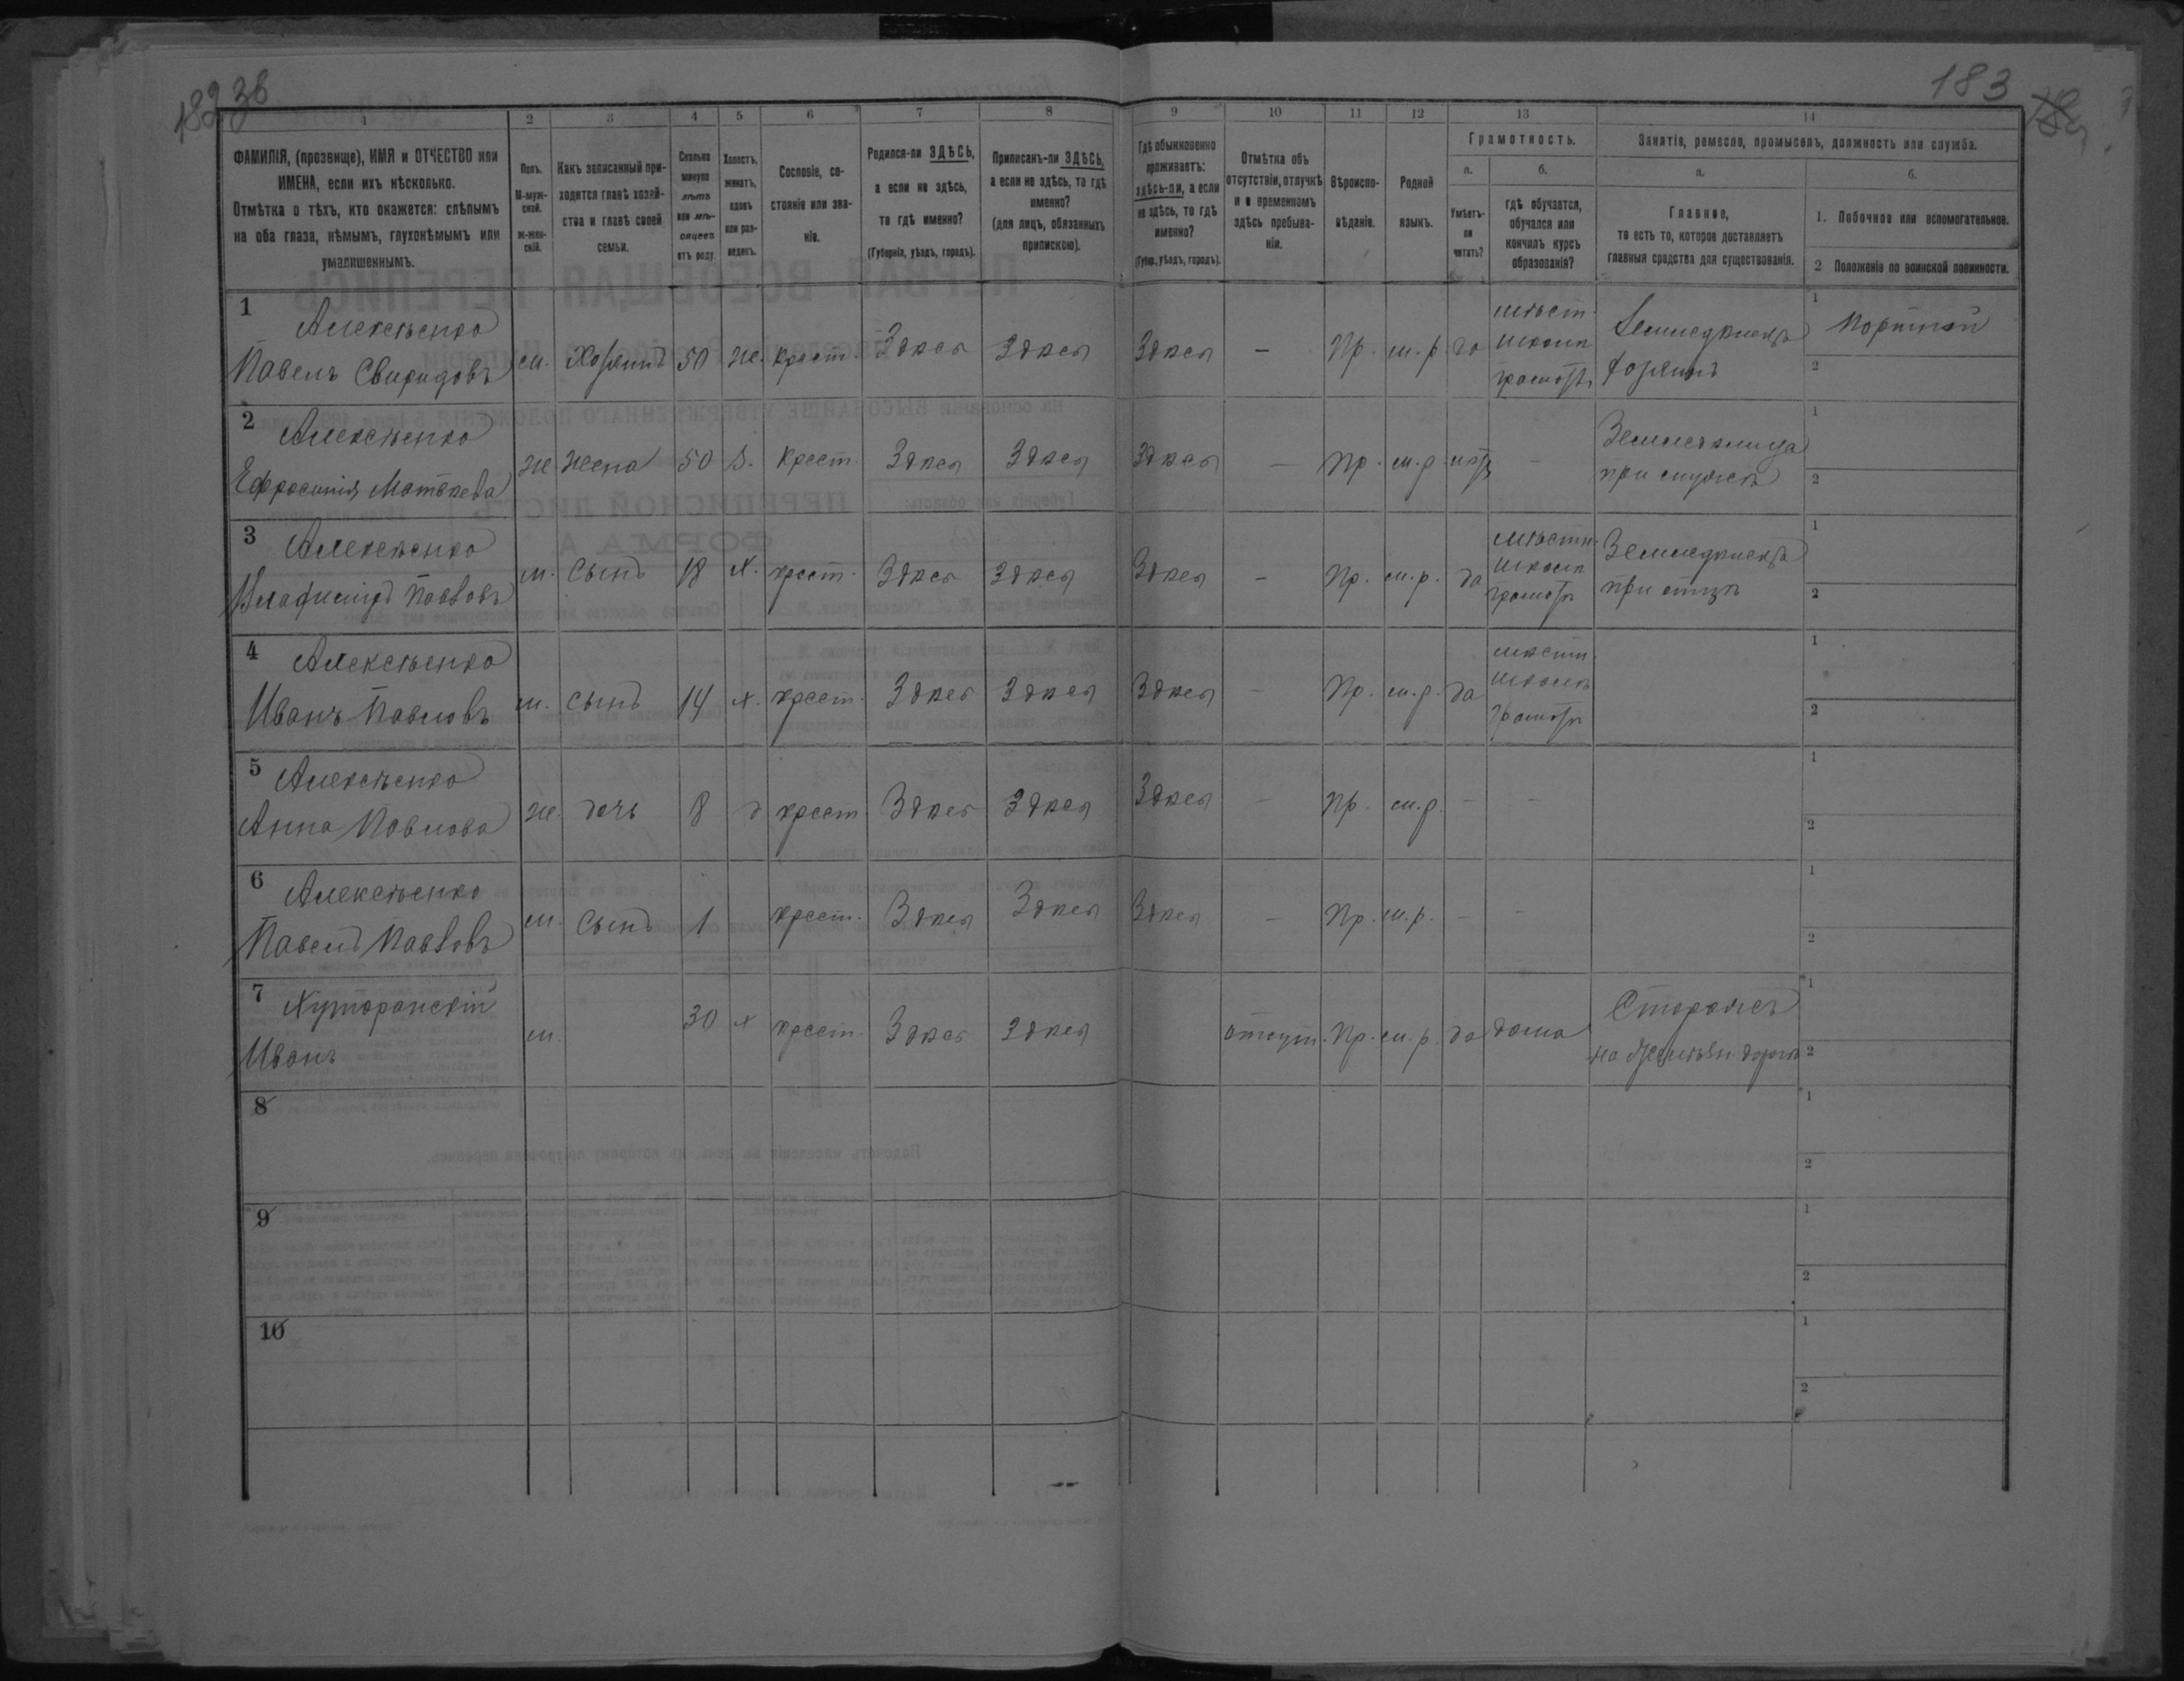 182 зв
183
1
2
3
4
5
6
7
8
9
10
11
12
13
14
ФАМИЛІЯ, (прозвище), ИМЯ и ОТЧЕСТВО или
ИМЕНА, если ихъ нѣсколько.
Отмѣтка о тѣхъ, кто окажется: слѣпымъ
на оба глаза, нѣмымъ, глухонѣмымъ или
умалишеннымъ.
Полъ.
М-муж-
ской.
Ж-жен-
скій.
Какъ записанный при-
ходится главѣ хозяй-
ства и главѣ своей
семьи.
Сколько
минуло
лѣтъ
или мѣ-
сяцевъ
отъ роду
Холостъ,
женатъ,
вдовъ
или раз-
веденъ.
Сословіе, со-
стояніе или зва-
ніе.
Родился-ли ЗДѢСЬ,
а если не здѣсь,
то гдѣ именно?
(Губернія, уѣздъ, городъ).
Приписанъ-ли ЗДѢСЬ,
а если не здѣсь, то гдѣ
именно?
(для лицъ, обязанныхъ
припискою).
Гдѣ обыкновенно
проживаетъ:
здѣсь-ли, а если
не здѣсь, то гдѣ
именно?
(Губер., уѣздъ, городъ).
Отмѣтка объ
отсутствіи, отлучкѣ
и о временномъ
здѣсь пребыва-
ніи.
Вѣроиспо-
вѣданіе.
Родной
языкъ.
Грамотность.
а.
Умѣетъ-
ли
читать?
б.
гдѣ обучается,
обучался или
кончилъ курсъ
образованія?
Занятіе, ремесло, промыселъ, должность или служба.
а.
Главное,
то есть то, которое доставляетъ
главныя средства для существованія.
б.
1. Побочное или вспомогательное.
2 Положеніе по воинской повинности.
1 Алексѣенко
Павелъ Свиридовъ
м. Хозяинъ 50 ж. крест. Здѣсь Здѣсь Здѣсь — Пр. м. р. да
мѣст.
школѣ
грамоты
Земледѣлецъ
хозяинъ
1 Портной
2
2 Алексѣенко
Ефросинія Матвѣева
ж жена 50 З. крест. Здѣсь Здѣсь Здѣсь — Пр. м. р. нѣтъ —
Земледѣлица
при мужѣ
1
2
3 Алексѣенко
Владиміръ Павловъ
м. сынъ 18 х. крест. Здѣсь Здѣсь Здѣсь — Пр. м. р. да
мѣстн.
школѣ
грамоты
Земледѣлецъ
при отцѣ
1
2
4 Алексѣенко
Иванъ Павловъ
м. сынъ 14 х. крест. Здѣсь Здѣсь Здѣсь — Пр. м. р. да
мѣстн.
школѣ
грамоты
1
2
5 Алексѣенко
Анна Павлова
ж. дочь 8 д крест. Здѣсь Здѣсь Здѣсь — Пр. м. р. — —
1
2
6 Алексѣенко
Павелъ Павловъ
м. сынъ 1 крест. Здѣсь Здѣсь Здѣсь — Пр. м. р. — —
1
2
7 Хуторанскій
Иванъ
м. 30 х крест. Здѣсь Здѣсь отсут. Пр. м. р. да дома
Сторожъ
на Желѣзн. дорогѣ
1
2
8
1
2
9
1
2
10
1
2